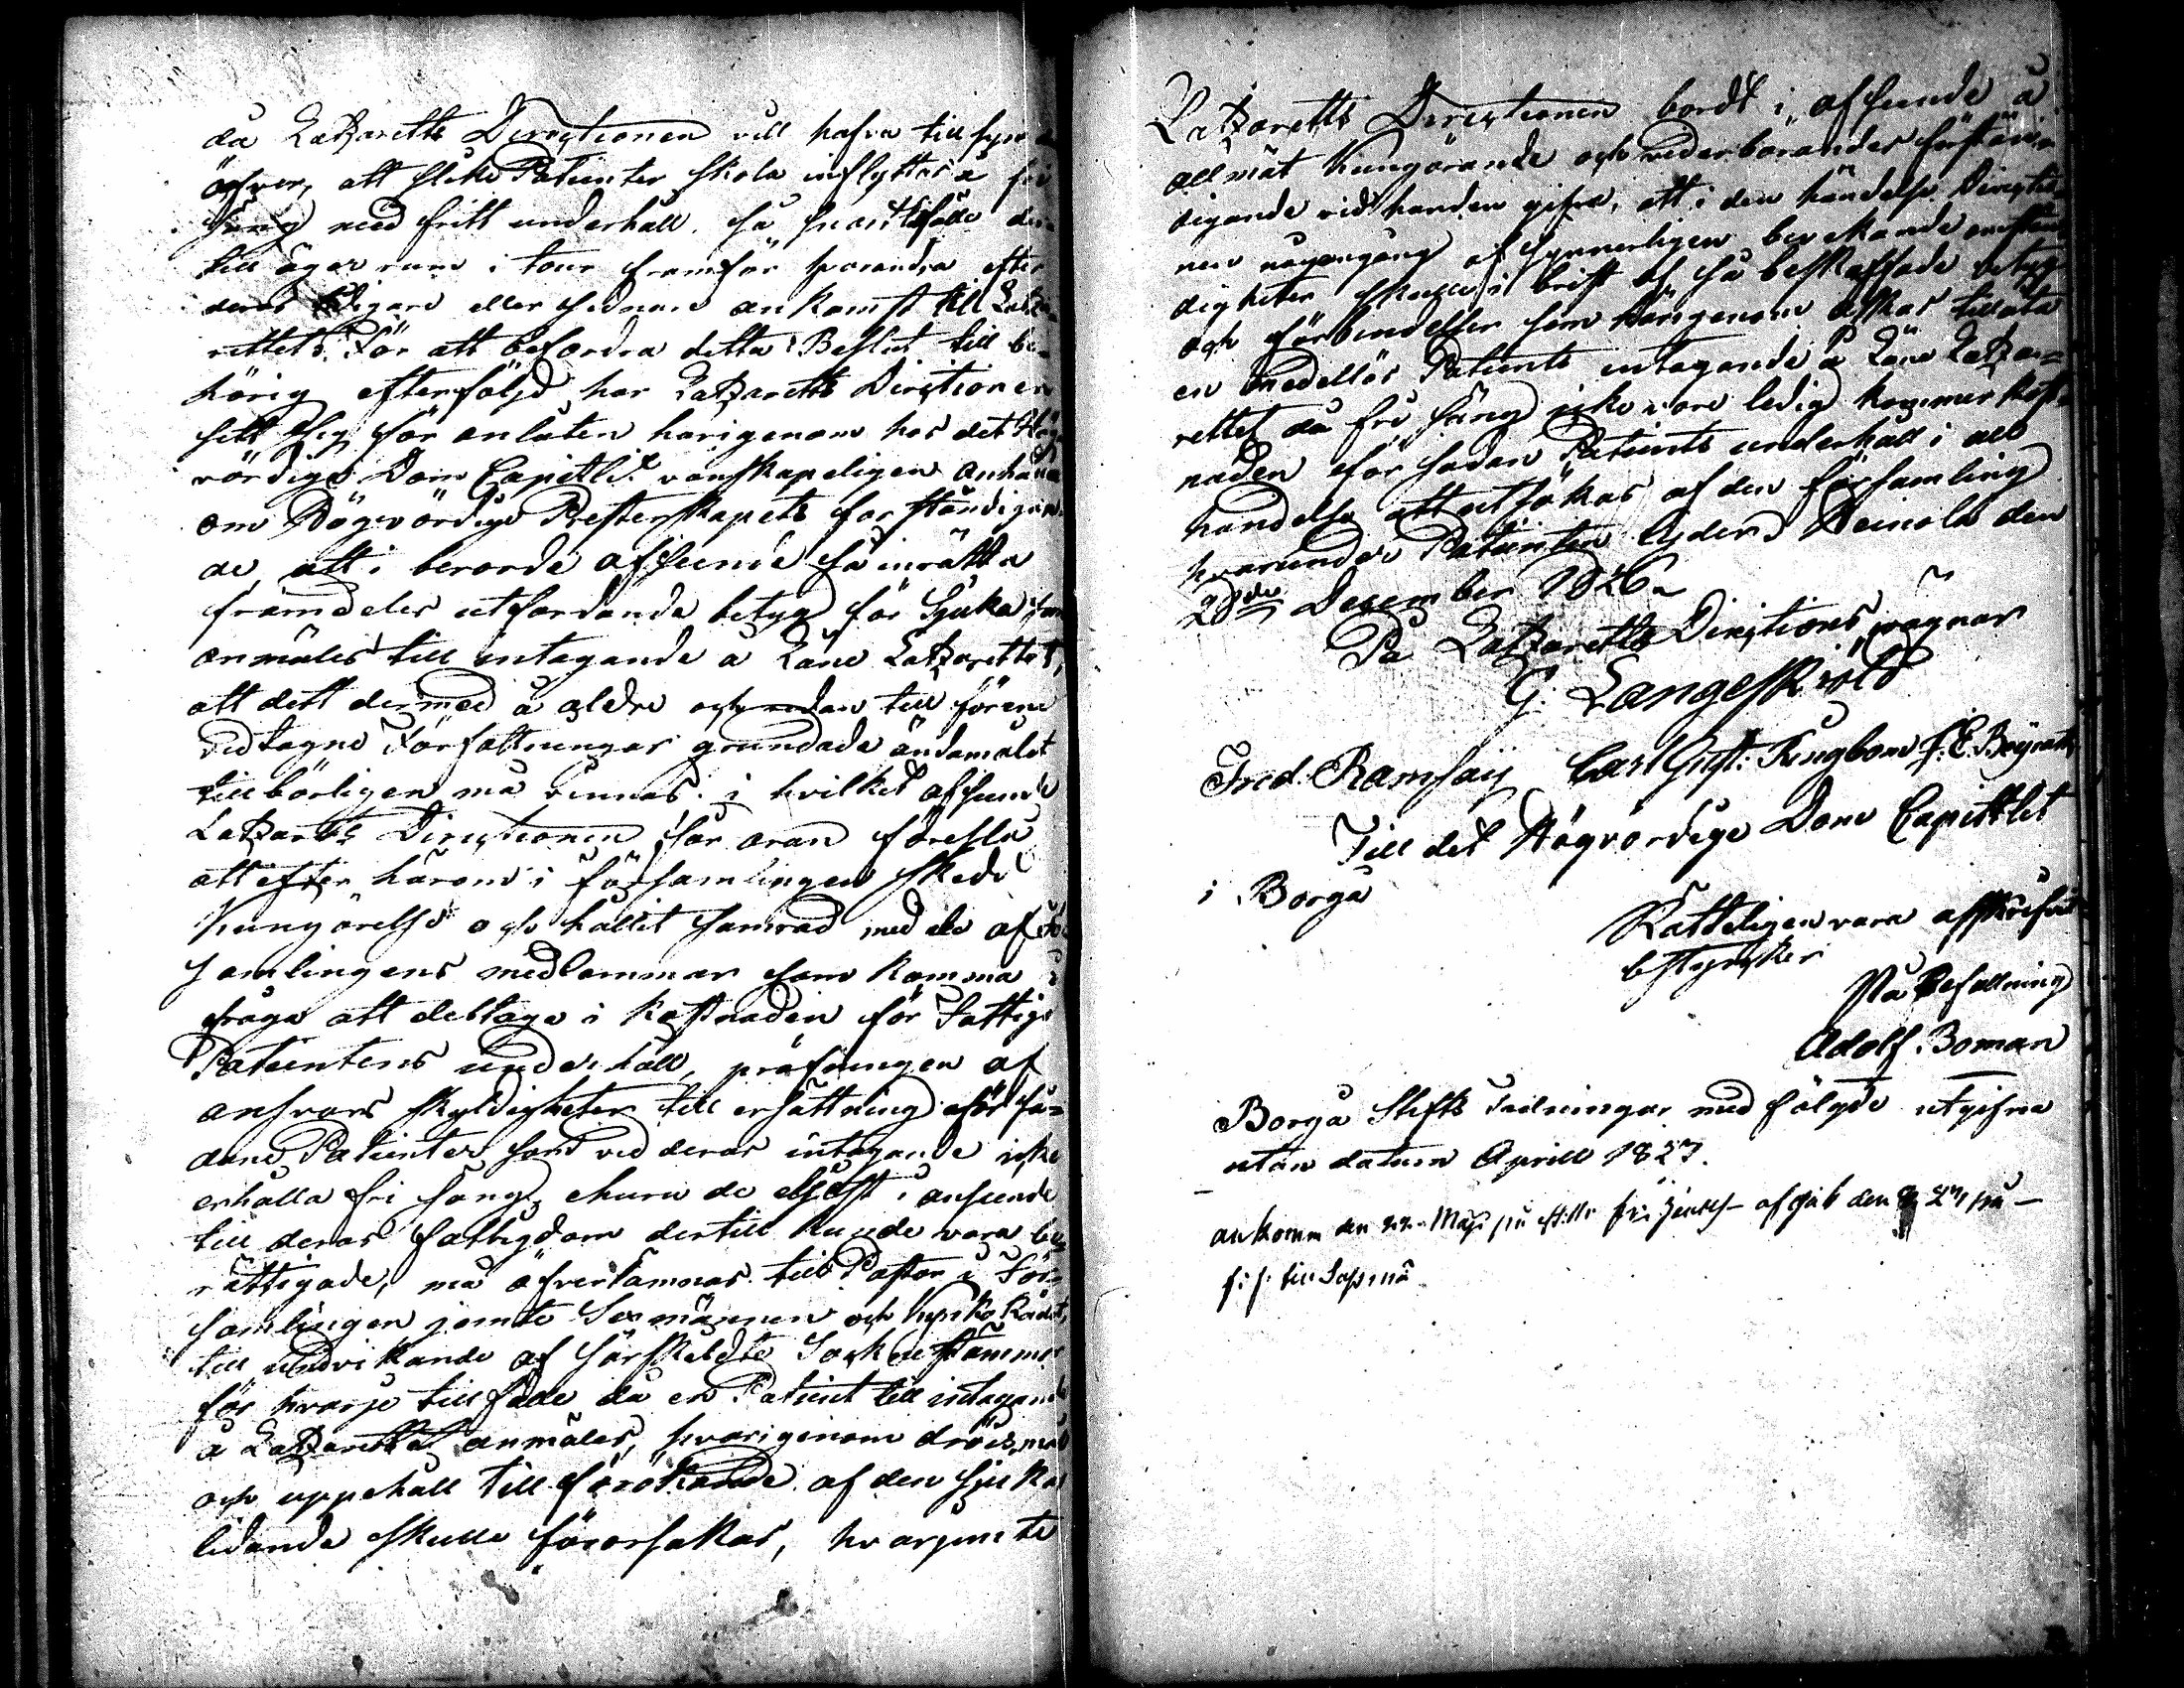 da Latzaretts Directionen vill hafva tillsyn
öfver, att slike Patienter skola inflyttas å fri
säng med fritt underhåll, så snart tillfälle der
till äger rum i tour framför hvarandra efter
deras tidigare eller sednare ankomst till Latza
rettet. För att befordra detta Beslut till be
hörig efterföljd har Latzaretts Directionen
sett sig för anlåten harigenom hos det Hög
vördige Dom Capitlet vänskapeligen anhålla
om Högvördige Presterskapets forständigan
de, att i berorde afseende så inrätta
framdeles utfardande betyg för Sjuka som
anmäles till intagande å Läne Latzarettet,
att dett dermed å aldre och redan till förene
vidtagne Författningar grundade ändamålet
tillbörligen må vinnas. i hvilket afseende
Latzaretts Directionen har äran föreslå
att efter härom i församlingen skedd
Kungörelse och hållit samråd med de af för
samlingens medlammar som komma i
fråga att deltaga i kostnaden för Fattige
Patientens underhåll, pröfningen af
ansvars skyldigheten till ersättning för så=
dane Patienter som vid deras intagande icke
erhålla fri säng, ehuru de eljest i anseende
till deras fattigdom dertill kunde vara be
rättigade, må öfverlämnas till Pastor i För
samlingen jemte Sexmännen och Kyrko Rådet,
till undvikande af särskeldte Sockne stämmor
för hvarje tillfälle da en Patient till intagande
å Latzarettet anmäles, hvarigenom dröjsmål
och uppehåll till förökande af den sjukas
lidande skulle förorsakas, hvarjemte
Latzaretts Directionen bordt i afseende å
allmänt Kungörande och vederbörandes förstän
digande vid handen gifva, att i den händelse Directio
nen någongång af synnerligen bevekande omstän
digheter skulle i brist af så beskaffade betyg
och förbindelser som härigenom äskas tillåta
en medellös Patients intagande å Läne Latza=
rettet då fri säng icke vore ledig kommer kost
naden för sådan Patients underhåll i all
händelse att utsökas af den församling
hvarunder Patienten lyder. Heinola den
28de December 1826
På Latzaretts Directions vägnar
G. Langenskiöld
Fred. Ramsay Carl Gust. Kingbom F. E. Bøyrath
Till det Högvördige Dom Capittlet
i Borgå
Rätteligen vara afskrifvit
bestyrker
På Befallning
Adolf Boman
Borgå Stifts Tidningar med följde utgifne
utan datum Aprill 1827.
ankomm den 22 Maji på afgick den 27 på
till Sysmä